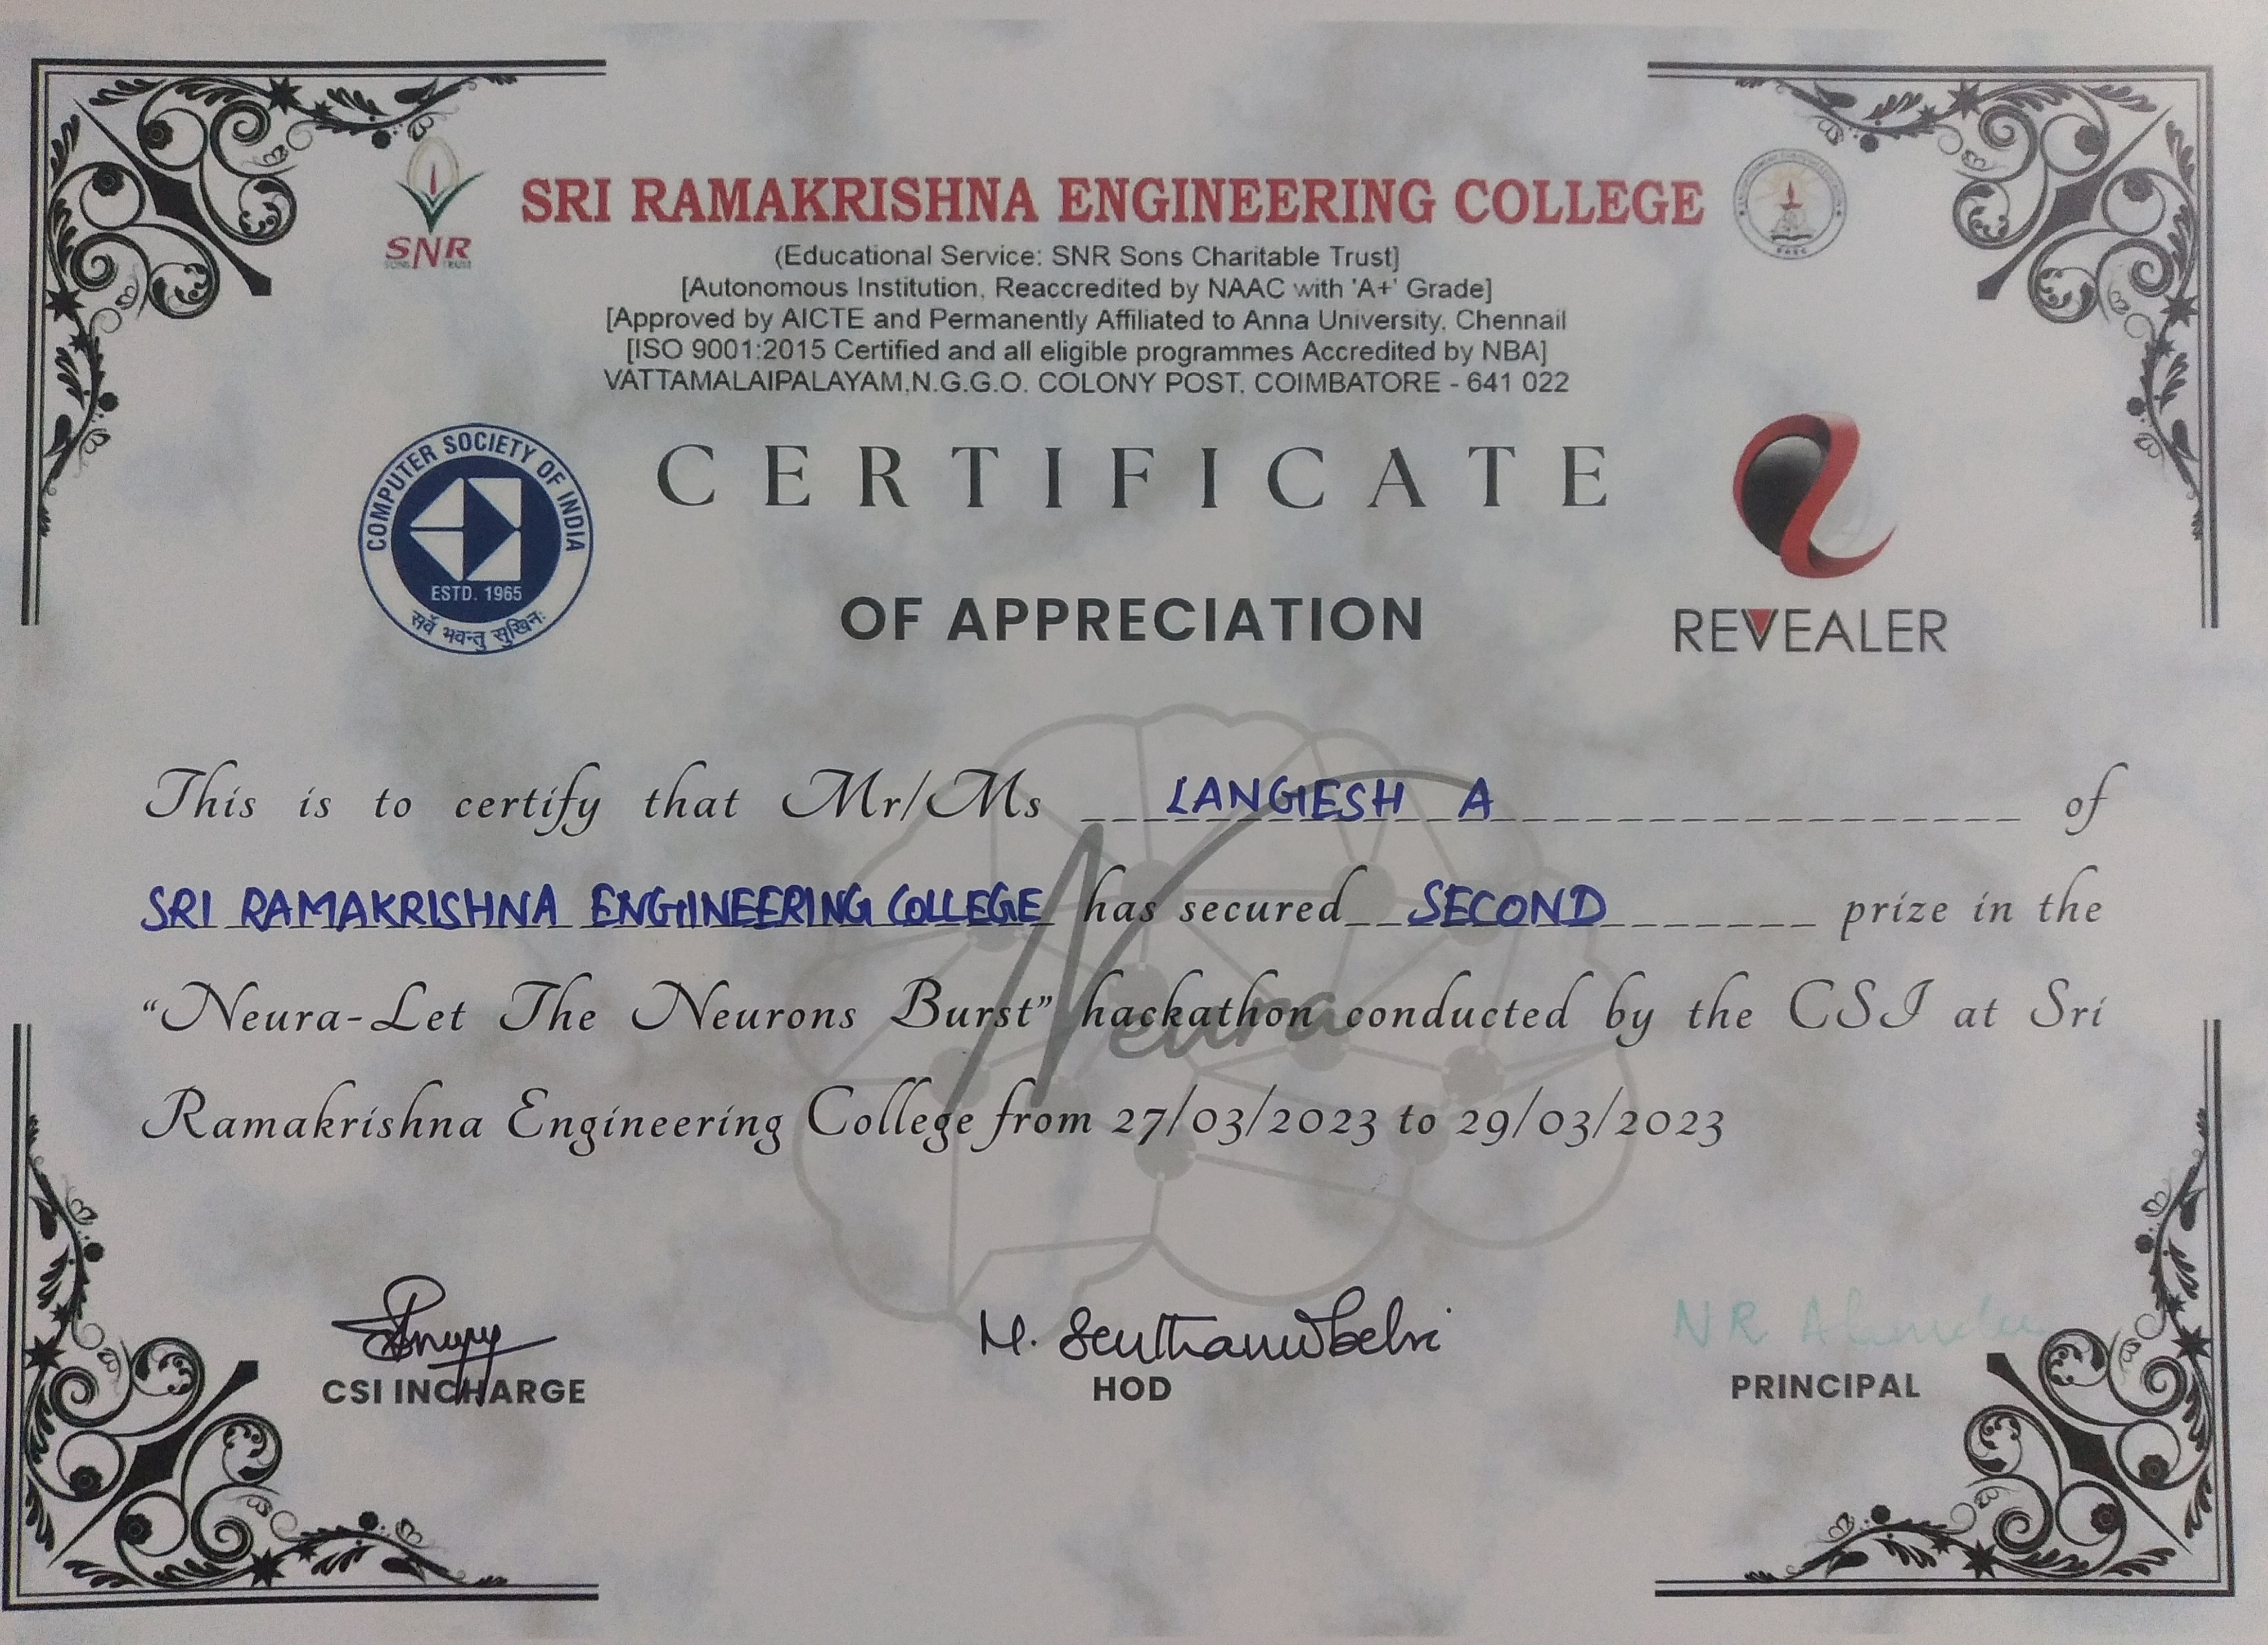 SNR
SONS TRUST
SRI RAMAKRISHNA ENGINEERING COLLEGE
(Educational Service: SNR Sons Charitable Trust]
[Autonomous Institution, Reaccredited by NAAC with 'A+' Grade]
[Approved by AICTE and Permanently Affiliated to Anna University, Chennail
[ISO 9001:2015 Certified and all eligible programmes Accredited by NBA]
VATTAMALAIPALAYAM,N.G.G.O. COLONY POST, COIMBATORE - 641 022
COMPUTER SOCIETY OF INDIA
ESTD. 1965
सर्वे भवन्तु सुखिनः
CERTIFICATE
OF APPRECIATION
REVEALER
This is to certify that Mr/Ms LANGIESH A of
SRI RAMAKRISHNA ENGINEERING COLLEGE has secured SECOND prize in the
“Neura-Let The Neurons Burst” hackathon conducted by the CSI at Sri
Ramakrishna Engineering College from 27/03/2023 to 29/03/2023
Neura
M.
NR
CSI INCHARGE
HOD
PRINCIPAL